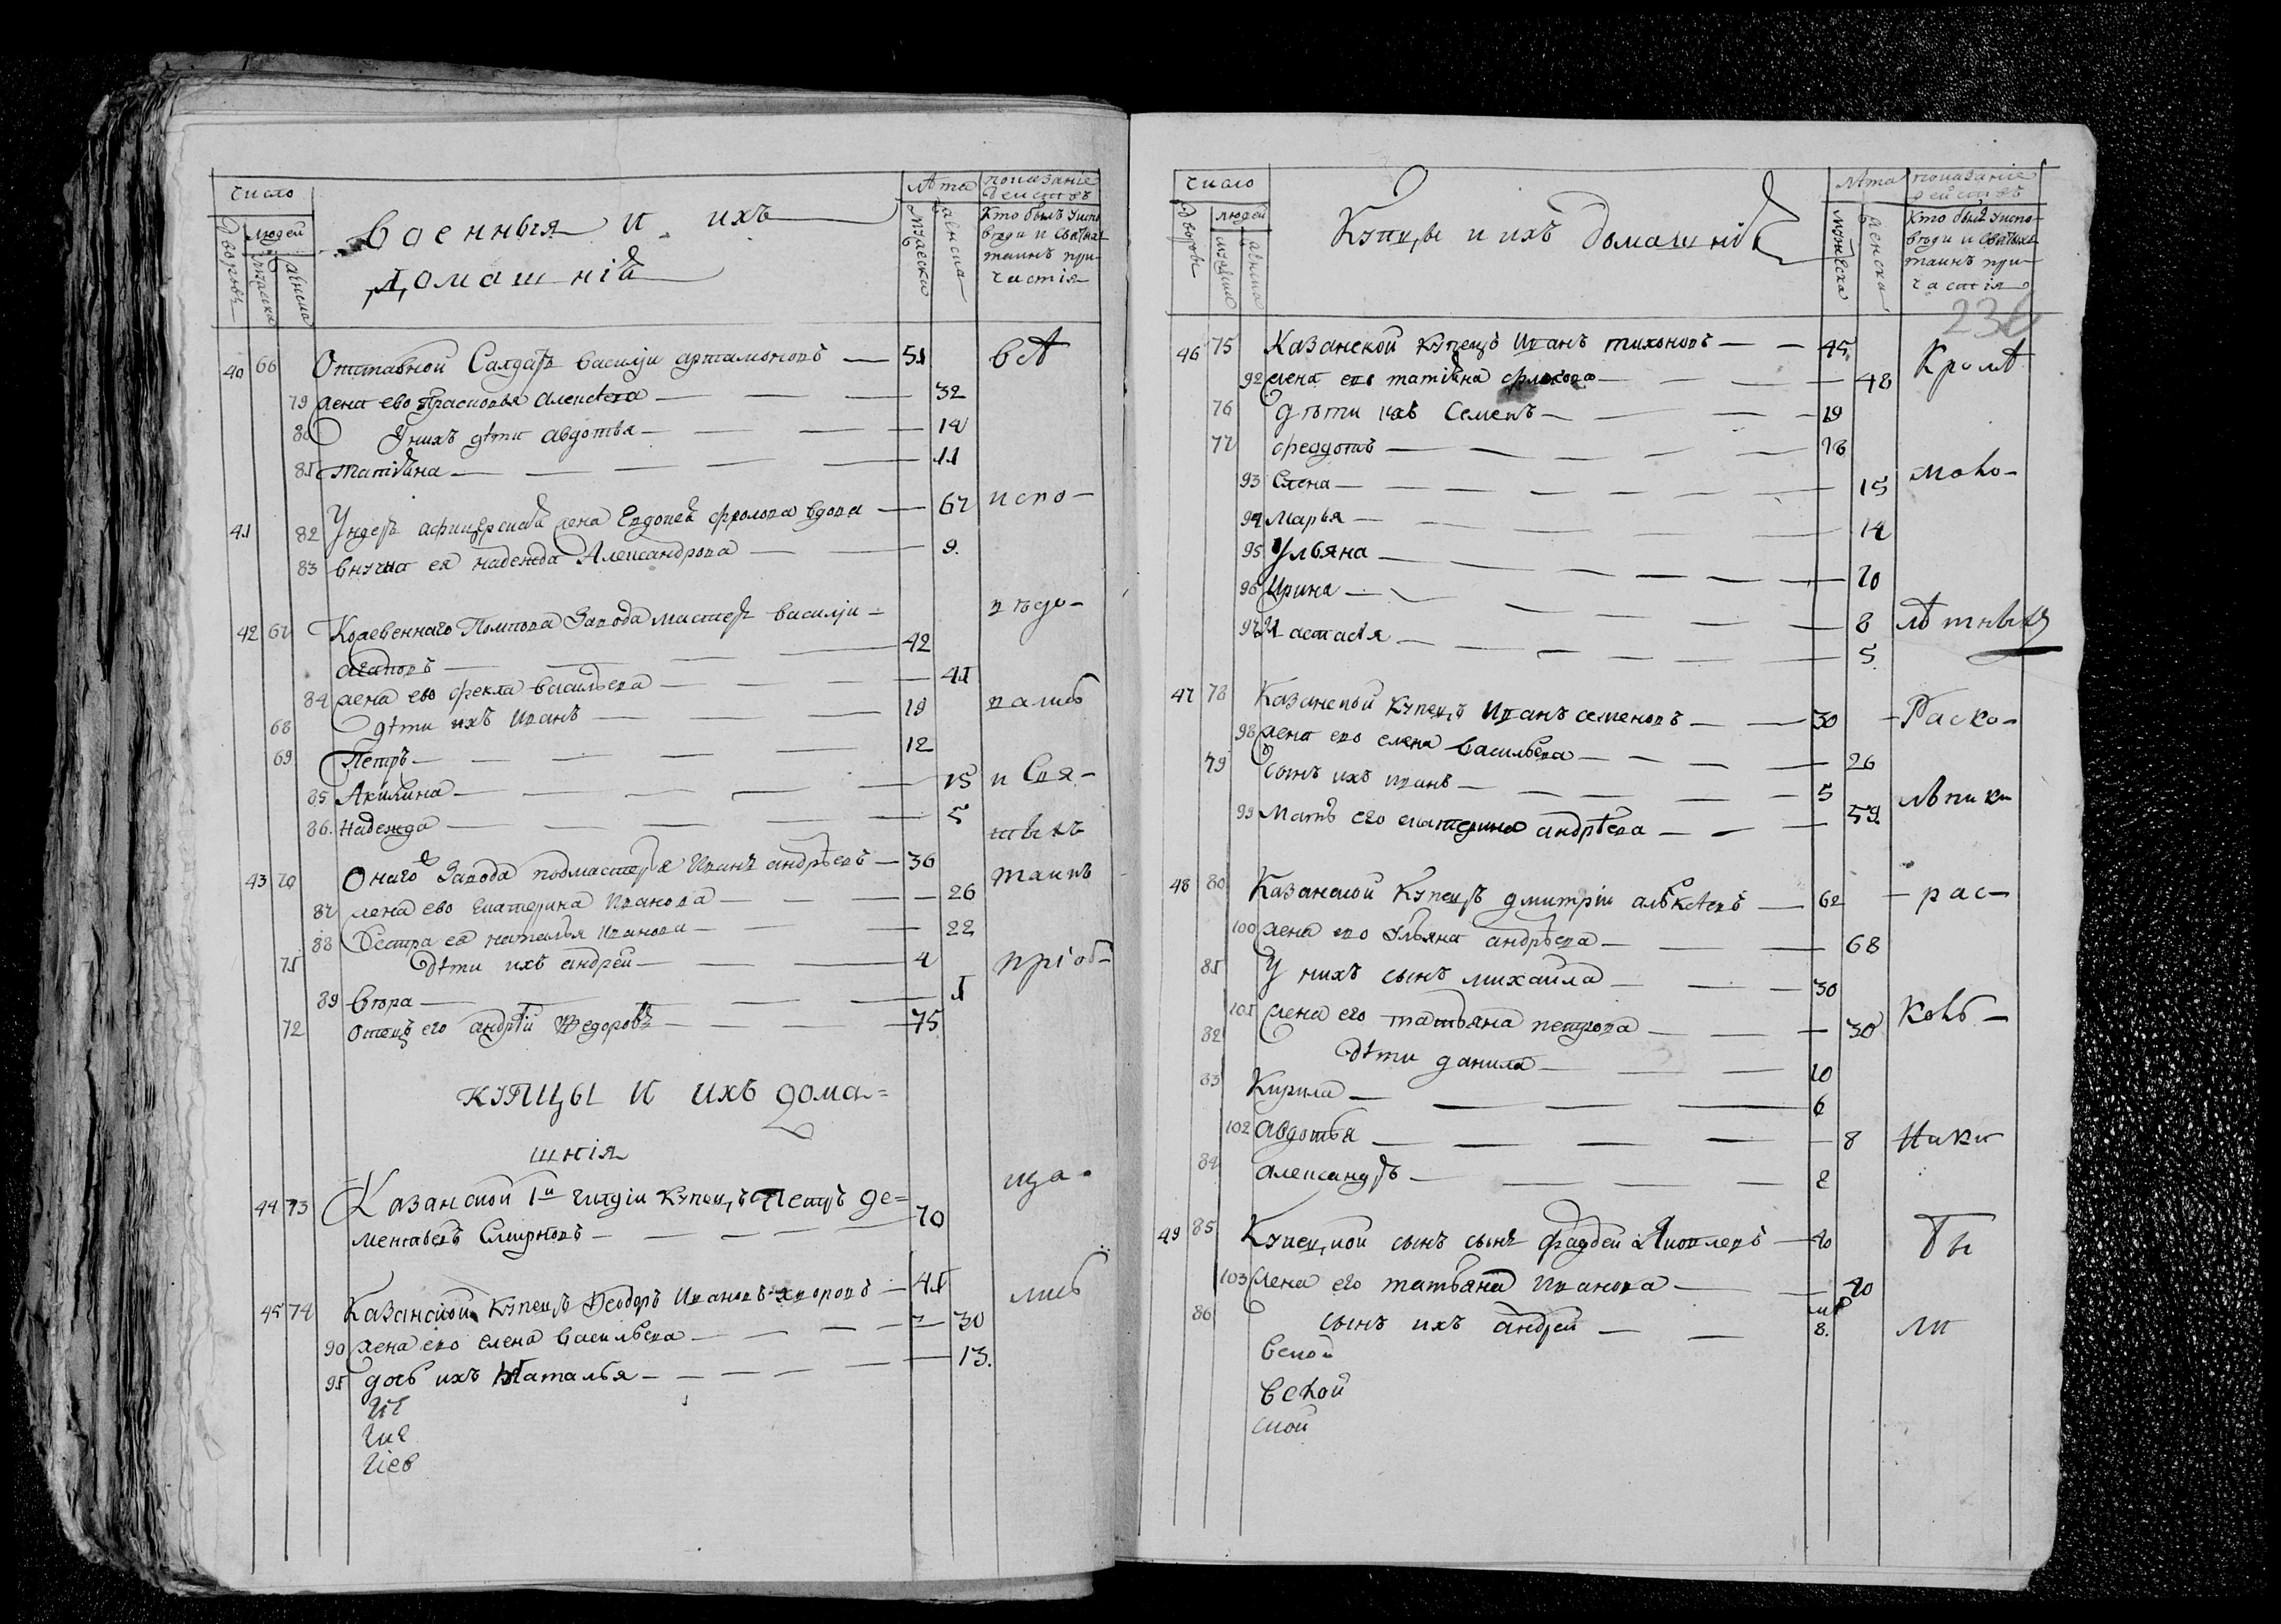 число
лѣта
показанїе действъ
Военныя и ихъ
домашнїя
дворовъ
людей
мужеска
женска
мужеска
женска
Кто былъ у испо
вѣди и святыхъ
таинъ при-
частїя
40 66 Отставной Салдатъ василїи артамоновъ — 51 всѣ
79 жена ево Прасковья алексѣева — 32
80 У нихъ дѣти авдотья — 14
81 татїяна — 11
41 82 Ундеръ афицерская жена Евдокея фролова вдова — 67 испо-
83 внучка ея надежда Александрова — 9.
42 67 Кожевеннаго Завода мастеръ василїи — вѣди-
агаповъ — 42
84 жена ево фекла васильева — 41
68 дѣти ихъ иванъ — 19 вались
69 Петръ — 12
85 Акилина — 15 и свя-
86. надежда — 5
тыхъ
43 70 Онаго Завода подмастерья Иванъ андрѣевъ — 36 таинъ
87 жена ево екатерина Иванова — 26
88 Сестра ея наталья иванова — 22
71 дѣти ихъ андреи — 4 прїоб-
89 вера — 1
72 отецъ его андрѣи Федоровъ — 75
КУПЦЫ И ИХЪ дома=
шнїя
ща-
44 73 Казанской 1й гилдїи купецъ Петръ де=
ментьевъ Смирновъ — 70
45 74 Казанской Купецъ Феодоръ Ивановъ — 41 лись
90 жена ево елена васильева — 30
91 дочь ихъ Наталья — 13.
число
лѣта
показанїе действъ
Купцы и ихъ домашнїя
дворовъ
людей
мужеска
женска
мужеска
женска
Кто былъ у испо-
вѣди и святыхъ
таинъ при-
частїя
236
46 75 Казанской купецъ Иванъ тихоновъ — 45. Кромѣ
92 жена ево татїяна фролова — 48
76 дѣти ихъ Семенъ — 19
77 федотъ — 18
93 Елена — 15 мало-
94 Марья — 14
95 Ульяна — 10
96 Ирина — 8 лѣтныхъ
97 Настасья — 5.
47 78 Казанской купецъ Иванъ семеновъ — 30 Раско-
98 жена ево елена васильева — 26
79 сынъ ихъ иванъ — 5 льники
99 Мать его екатерина андрѣева — 59
48 80 Казанской Купецъ дмитрїи алѣксѣевъ — 62 рас-
100 жена ево ульяна андрѣева — 68
81 У нихъ сынъ михаила — 30
101 жена его татьяна петрова — 30 коль-
82 дѣти данила — 10
83 Кирила — 6
102 авдотья — 8 ники
84 александръ — 2
49 85 Купецкой сынъ сынъ фаддеи — 40 бы
103 жена его татьяна Иванова — 40
86 сынъ ихъ андреи — 8. ли